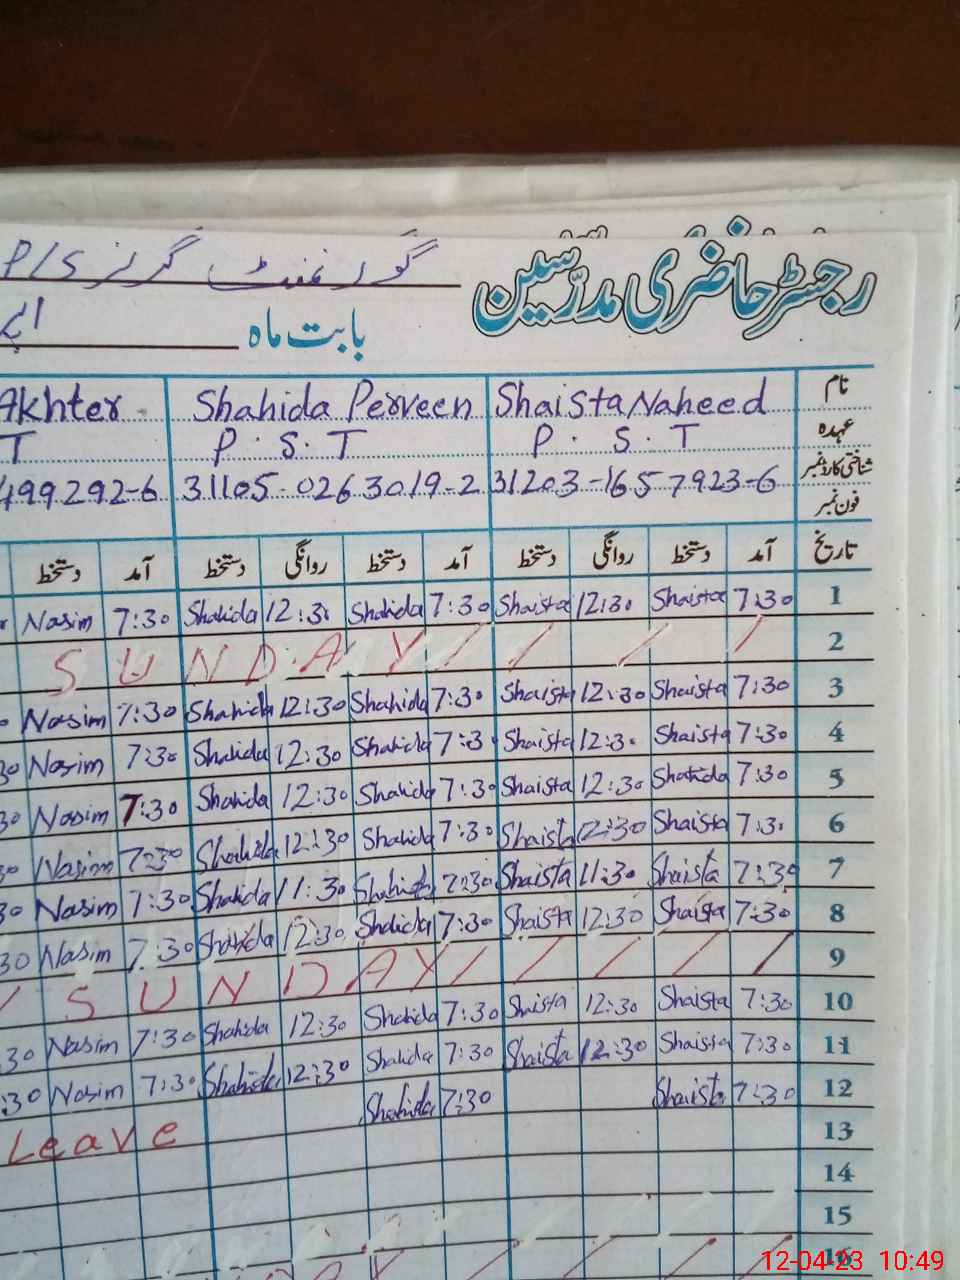 رجسٹر حاضری مدرّسین گورنمنٹ گرلز P/S
بابت ماہ
نام Shaista Naheed Shahida Perveen Akhter
عہدہ P.S.T P.S.T T
شناختی کارڈ نمبر 31203-1657923-6 31105-0263019-2 499292-6
فون نمبر
تاریخ آمد دستخط روانگی دستخط آمد دستخط روانگی دستخط آمد دستخط
1 7:30 Shaista 12:30 Shaista 7:30 Shahida 12:30 Shahida 7:30 Nasim
2 / / / / SUNDAY
3 7:30 Shaista 12:30 Shaista 7:30 Shahida 12:30 Shahida 7:30 Nasim
4 7:30 Shaista 12:30 Shaista 7:30 Shahida 12:30 Shahida 7:30 Nasim 30
5 7:30 Shahida 12:30 Shaista 7:30 Shahida 12:30 Shahida 7:30 Nasim 30
6 7:30 Shaista 12:30 Shaista 7:30 Shahida 12:30 Shahida 7:30 Nasim 30
7 7:30 Shaista 11:30 Shaista 7:30 Shahida 11:30 Shahida 7:30 Nasim 30
8 7:30 Shaista 12:30 Shaista 7:30 Shahida 12:30 Shahida 7:30 Nasim 30
9 / / / / / SUNDAY /
10 7:30 Shaista 12:30 Shaista 7:30 Shahida 12:30 Shahida 7:30 Nasim 30
11 7:30 Shaista 12:30 Shaista 7:30 Shahida 12:30 Shahida 7:30 Nasim :30
12 7:30 Shaista 7:30 Shahida Leave
13
14
15
16 DAY
12-04-23 10:49